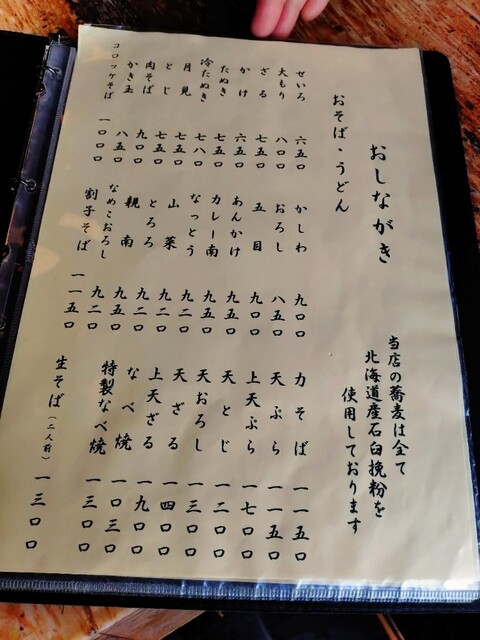 おしながき
当店の蕎麦は全て
北海道産石臼挽粉を
使用しております
おそば・うどん
せいろ 六五〇
大もり 八〇〇
ざる 七五〇
かけ 六五〇
たぬき 七五〇
冷たぬき 七八〇
月見 七五〇
とじ 七五〇
肉そば 九〇〇
かき玉 八五〇
コロッケそば 一〇〇〇
かしわ 九〇〇
おろし 八五〇
五目 九〇〇
あんかけ 九五〇
カレー南 九五〇
なっとう 九二〇
山菜 九二〇
とろろ 九二〇
親南 九五〇
なめこおろし 九二〇
割子そば 一一五〇
力そば 一一五〇
天ぷら 一一五〇
上天ぷら 一七〇〇
天とじ 一二〇〇
天おろし 一三〇〇
天ざる 一四〇〇
上天ざる 一九〇〇
なべ焼 一〇三〇
特製なべ焼 一三〇〇
生そば(二人前) 一三〇〇